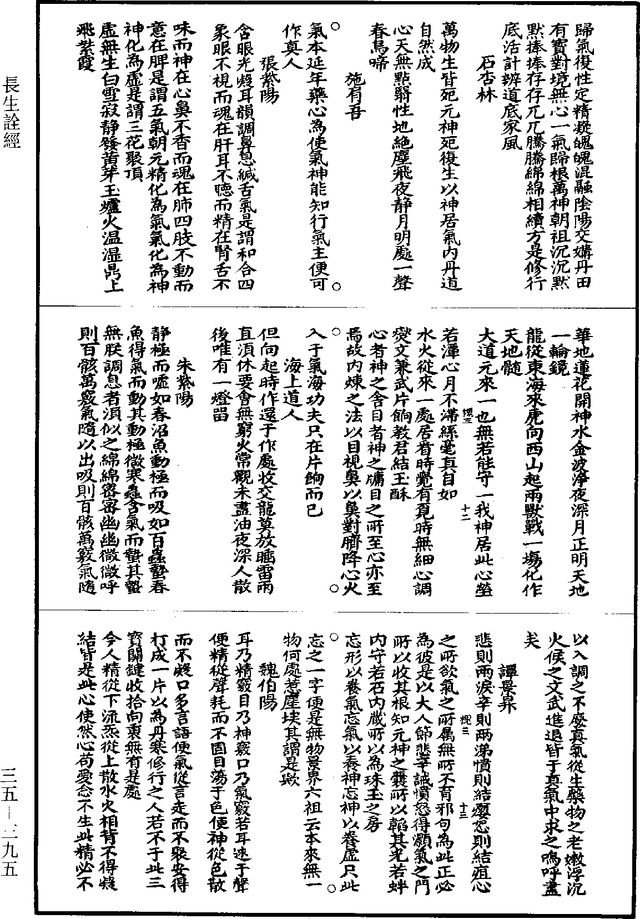 歸氣復性定精凝魄魄混融陰陽交媾丹田
有寶對境無心一氣歸根萬神朝祖沉沉默
默捧捧存存兀兀騰騰綿綿相續方是修行
底活計辨道底家風
石杏林
萬物生皆死元神死復生以神居氣內丹道
自然成
心天無點翳性地絕塵飛夜靜月明處一聲
春鳥啼
施肩吾
氣本延年藥心為使氣神能知行氣主便可
作真人
張紫陽
含眼光凝耳韻調鼻息緘舌氣是謂和合四
象眼不視而魂在肝耳不聽而精在腎舌不
味而神在心鼻不香而魂在肺四肢不動而
意在脾是謂五氣朝元精化為氣氣化為神
神化為虛是謂三花聚頂
虛無生白雪寂靜發黃芽玉爐火溫溫鼎上
飛紫霞
華地蓮花開神水金波淨夜深月正明天地
一輪鏡
龍從東海來虎向西山起兩獸戰一塲化作
天地髓
大道元來一也無若能守一我神居此心瑩
十二
若潭心月不滿絲毫真自如
水火從來一處居看時覺有覓時無細心調
燮文兼武片餉教君結玉酥
心者神之舍目者神之牖目之所至心亦至
焉故內煉之法以目視鼻以鼻對臍降心火
入于氣海功夫只在片餉而已
海上道人
但向起時作還于作處收交龍莫放睡雷雨
直須休要會無窮火常觀未盡油夜深人散
後唯有一燈留
朱紫陽
靜極而噓如春沼魚動極而吸如百蟲蟄春
魚得氣而動其動極微寒蟲含氣而蟄其蟄
無朕調息者須似之綿綿密密幽幽微微呼
則百骸萬竅氣隨以出吸則百骸萬竅氣隨
以入調之不廢真氣從生藥物之老嫩浮沉
火候之文武進退皆于真氣中求之嗚呼盡
矣
譚景昇
悲則兩淚辛則兩涕憤則結癭忿則結疽心
十三
之所欲氣之所屬無所不有邪勾為此正必
為彼是以大人節悲辛誡憤怒得灝氣之門
所以收其根知元神之囊所以韜其光若蚌
內守若石內藏所以為珠玉之房
忘形以養氣忘氣以養神忘神以養虛只此
忘之一字便是無物景界六祖云本來無一
物何處惹塵埃其謂是歟
魏伯陽
耳乃精竅目乃神竅口乃氣竅若耳逐于聲
便精從聲耗而不固目蕩于色便神從色散
而不凝口多言語便氣從言走而不聚安得
打成一片以為丹寨修行之人若不于此三
寶關鍵收拾向裏無有是處
今人精從下流炁從上散水火相背不得凝
結皆是此心使然心苟愛念不生此精必不
長生詮經
三五—三九五